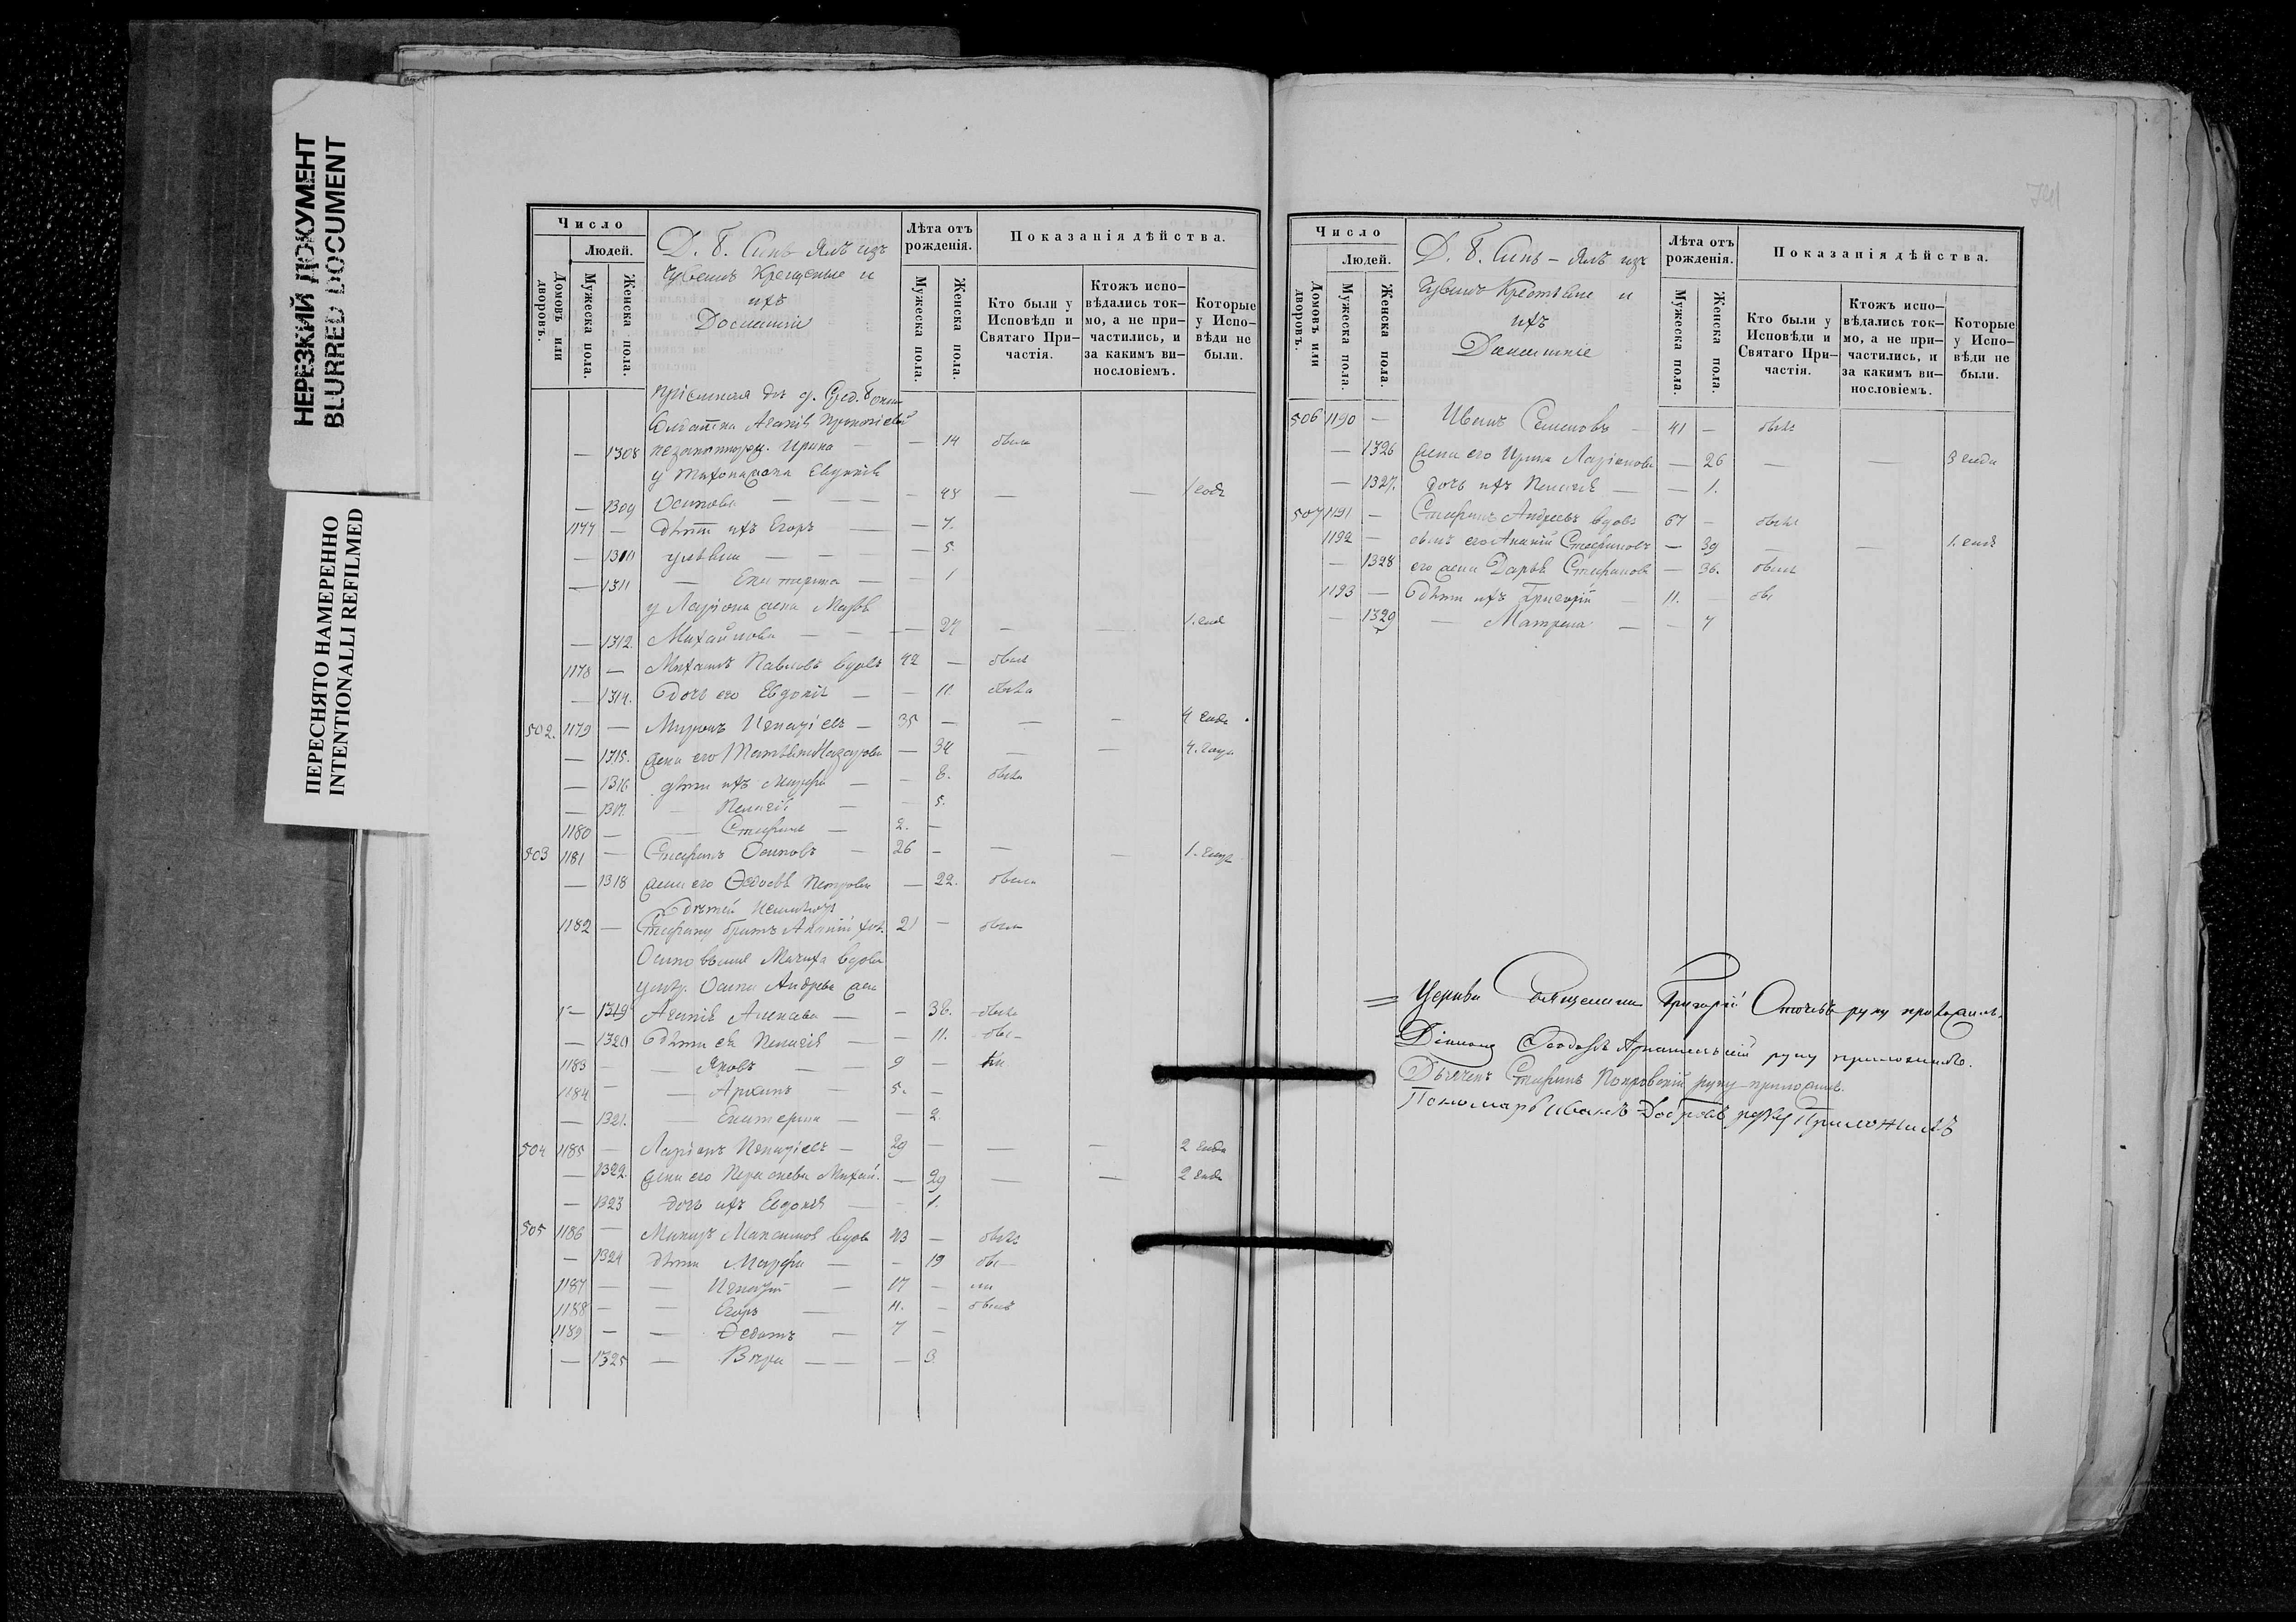 НЕРЕЗКИЙ ДОКУМЕНТ
BLURRED DOCUMENT
ПЕРЕСНЯТО НАМЕРЕННО
INTENTIONALLI REFILMED
Число
Людей.
Домовъ или дворовъ.
Мужеска пола.
Женска пола.
Д. Б. Синь-Ялъ изъ
Чувашъ Крещеные и
ихъ
Домашніе
Лѣта отъ рожденія.
Мужеска пола.
Женска пола.
Показанія дѣйства.
Кто были у Исповѣди и Святаго Причастія.
Ктожъ исповѣдались токмо, а не причастились, и за какимъ винословіемъ.
Которые у Исповѣди не были.
Солдатка Агаѳія
— 1308 незаконнорож. Ирина — — 14 была
у Тихона жена Евдокія
— 1309 Осипова — — — 48 — — 1 годъ
1177 — дѣти ихъ Егоръ — — 7.
— 1310 — — 5.
— 1311 — Екатерина — 1
у Ларіона жена
— 1312. Михайлова — — — 27 — — 1. годъ
1178 — Михаилъ Павловъ вдовъ 42 — былъ
— 1314. дочь его Евдокія — — 11. была
502. 1179 — Миронъ Игнатіевъ — 35 — — — 4 года
— 1315. жена его Татьяна Назарова — 34 — — 4. года
— 1316 дѣти ихъ Марфа — — 8. была
— 1317. — Пелагія — — 5.
1180 — — Стефанъ — 2. —
503 1181 — Стефанъ Осиповъ — 26 — — — 1. годъ
— 1318 жена его Ѳедосья Петрова — 22. была
дѣтей неимѣютъ
1182 — Стефану братъ Ананій хол. 21 — былъ
Осиповымъ Мачиха вдова
умер. Осипа Андреева жена
— 1319 Агаѳія Алексѣева — — 38. была
— 1320 дѣти ея Пелагія — — 11. бы—
1183 — — Яковъ — — 9 — —
1184 — — Архипъ 5. —
— 1321. — Екатерина — — 2.
504 1185 — Ларіонъ Игнатіевъ — 29 — — — 2 года
— 1322. жена его Парасковья Михай. — 29 — — 2 года
— 1323 дочь ихъ Евдокія — — 1.
505 1186 — Максимовъ вдовъ 43 — былъ
— 1324 дѣти Марфа — — 19 бы—
1187 — — Игнатій — 17 —
1188 — — Егоръ — 11. — былъ
1189 — — Ѳедотъ — 7 —
— 1325 — Вѣра — — — 3.
Число
Людей.
Домовъ или дворовъ.
Мужеска пола.
Женска пола.
Д. Б. Синь-Ялъ изъ
Чувашъ Крестьяне и
ихъ
Домашніе
Лѣта отъ рожденія.
Мужеска пола.
Женска пола.
Показанія дѣйства.
Кто были у Исповѣди и Святаго Причастія.
Ктожъ исповѣдались токмо, а не причастились, и за какимъ винословіемъ.
Которые у Исповѣди не были.
506 1190 — Иванъ Семеновъ — 41 — былъ
— 1326 жена его Ирина Ларіонова — 26 — — 3 года
— 1327. дочь ихъ Пелагія — — 1.
507 1191 — Стефанъ Андреевъ вдовъ 67 — былъ
1192 — сынъ его Ананій Стефановъ — 39 — — 1. годъ
— 1328 его жена Дарья Степанова — 36. была
1193 — дѣти ихъ Григорій — 11. — бы
— 1329 — Матрена — — 7
= Церкви Священникъ Григорій руку приложилъ.
Діаконъ Ѳеодоръ руку приложилъ.
Дьячекъ Стефанъ Покровскій руку приложилъ.
Пономарь Иванъ руку Приложилъ